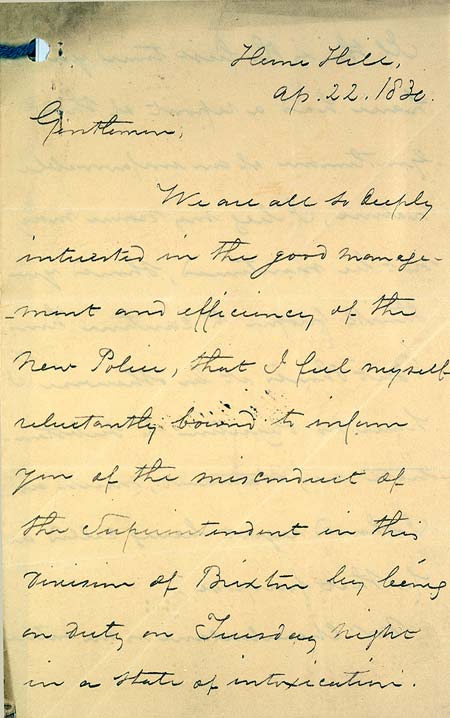 Herne Hill,
Ap. 22. 1830.
Gentlemen,
We are all so deeply
interested in the good manage-
-ment and efficiency of the
New Police, that I feel myself
reluctantly bound to inform
you of the misconduct of
the Superintendent in this
Division of Brixton by being
on Duty on Tuesday Night
in a state of intoxication.